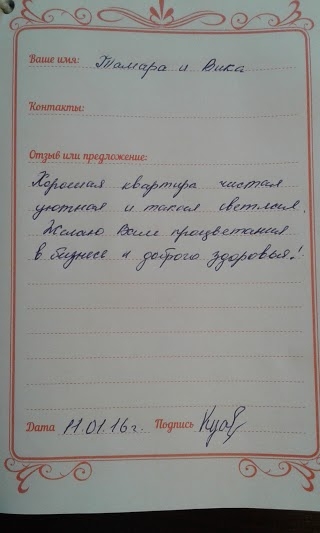 Ваше имя: Тамара и Вика
Контакты:
Отзыв или предложение:
Хорошая квартира чистая
уютная и такая светлая.
Желаю Вам процветания
в бизнесе и доброго здоровья!
Дата 11.01.16г. Подпись